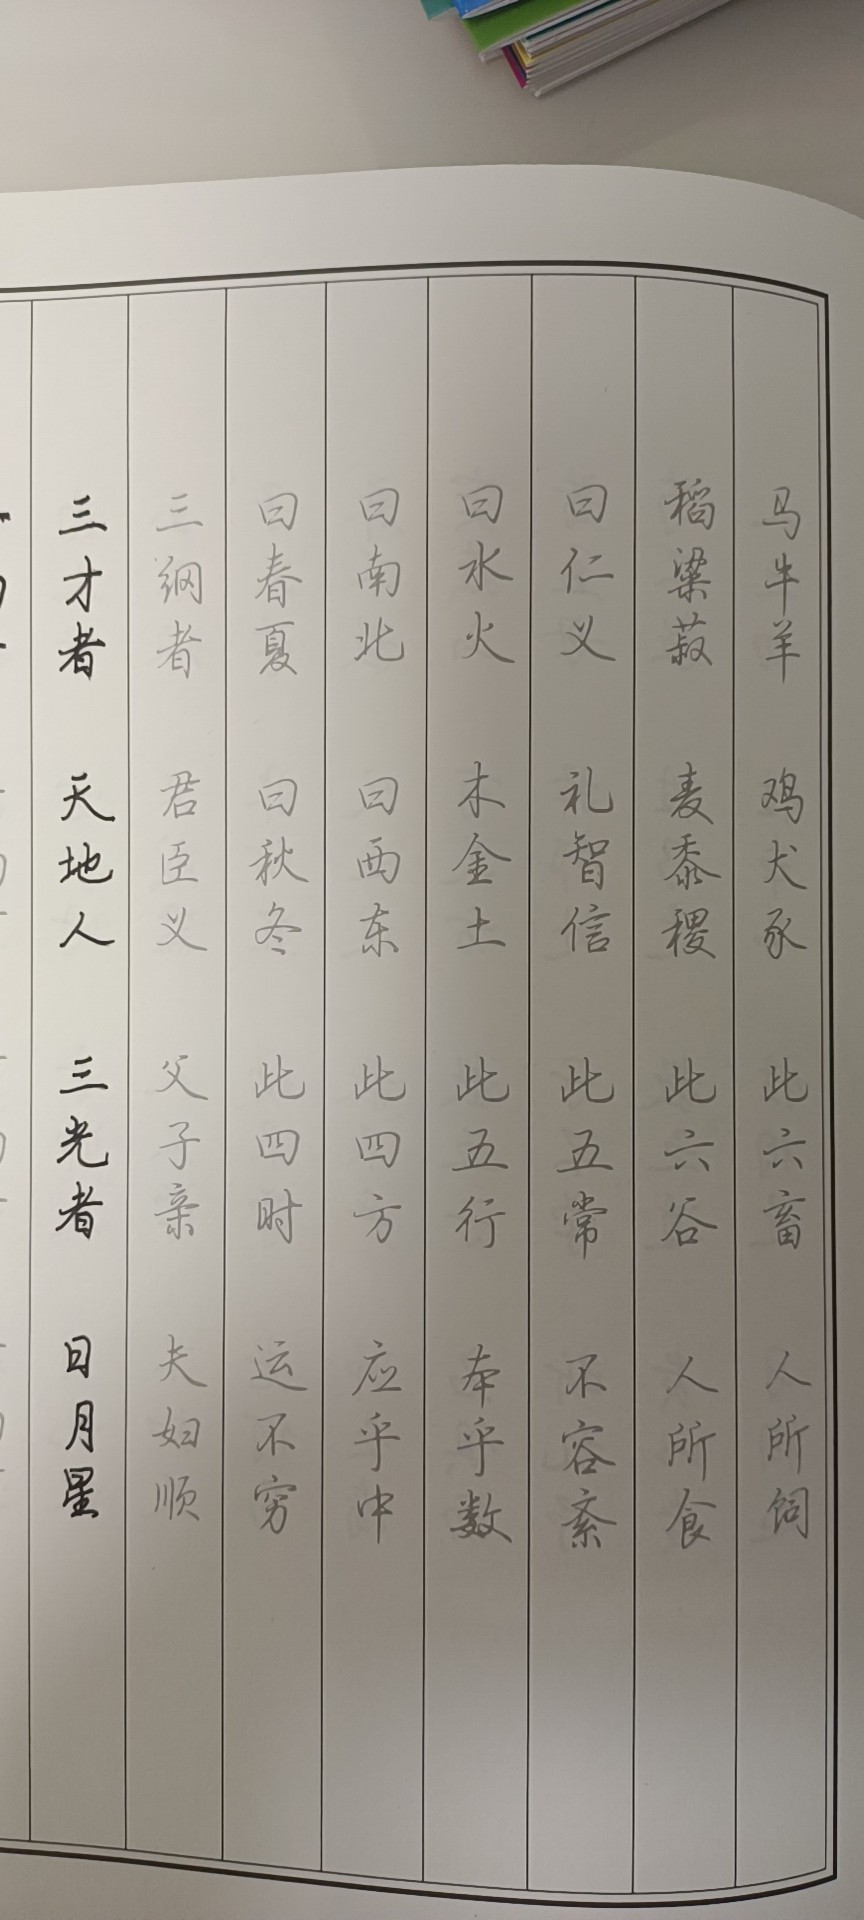 三才者 天地人 三光者 日月星
三纲者 君臣义 父子亲 夫妇顺
曰春夏 曰秋冬 此四时 运不穷
曰南北 曰西东 此四方 应乎中
曰水火 木金土 此五行 本乎数
曰仁义 礼智信 此五常 不容紊
稻粱菽 麦黍稷 此六谷 人所食
马牛羊 鸡犬豕 此六畜 人所饲